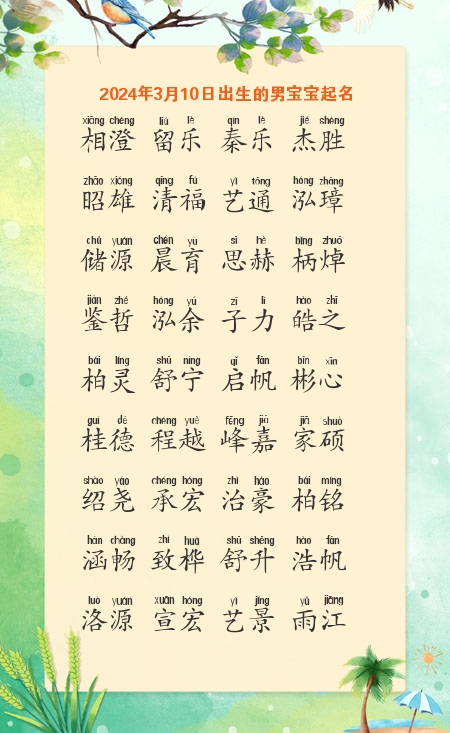 2024年3月10日出生的男宝宝起名
xiāng chéng liú lè qín lè jié shèng
相澄 留乐 秦乐 杰胜
zhāo xióng qīng fú yì tōng hóng zhāng
昭雄 清福 艺通 泓璋
chǔ yuán chén yù sī hè bǐng zhuō
储源 晨育 思赫 柄焯
jiàn zhé hóng yú zǐ lì hào zhī
鉴哲 泓余 子力 皓之
bǎi líng shū níng qǐ fān bīn xīn
柏灵 舒宁 启帆 彬心
guì dé chéng yuè fēng jiā jiā shuò
桂德 程越 峰嘉 家硕
shào yáo chéng hóng zhì háo bǎi míng
绍尧 承宏 治豪 柏铭
hán chàng zhì huà shū shēng hào fān
涵畅 致桦 舒升 浩帆
luò yuán xuān hóng yì jǐng yǔ jiāng
洛源 宣宏 艺景 雨江